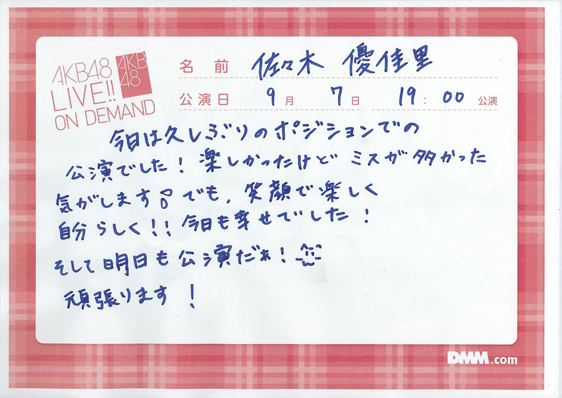 AKB48
LIVE!!
ON DEMAND
AKB
48
名前 佐々木 優佳里
公演日 9月 7日 19:00 公演
今日は久しぶりのポジションでの
公演でした！楽しかったけど ミスが多かった
気がします でも、笑顔で楽しく
自分らしく!! 今日も幸せでした！
そして明日も公演だぁ！
頑張ります！
DMM.com